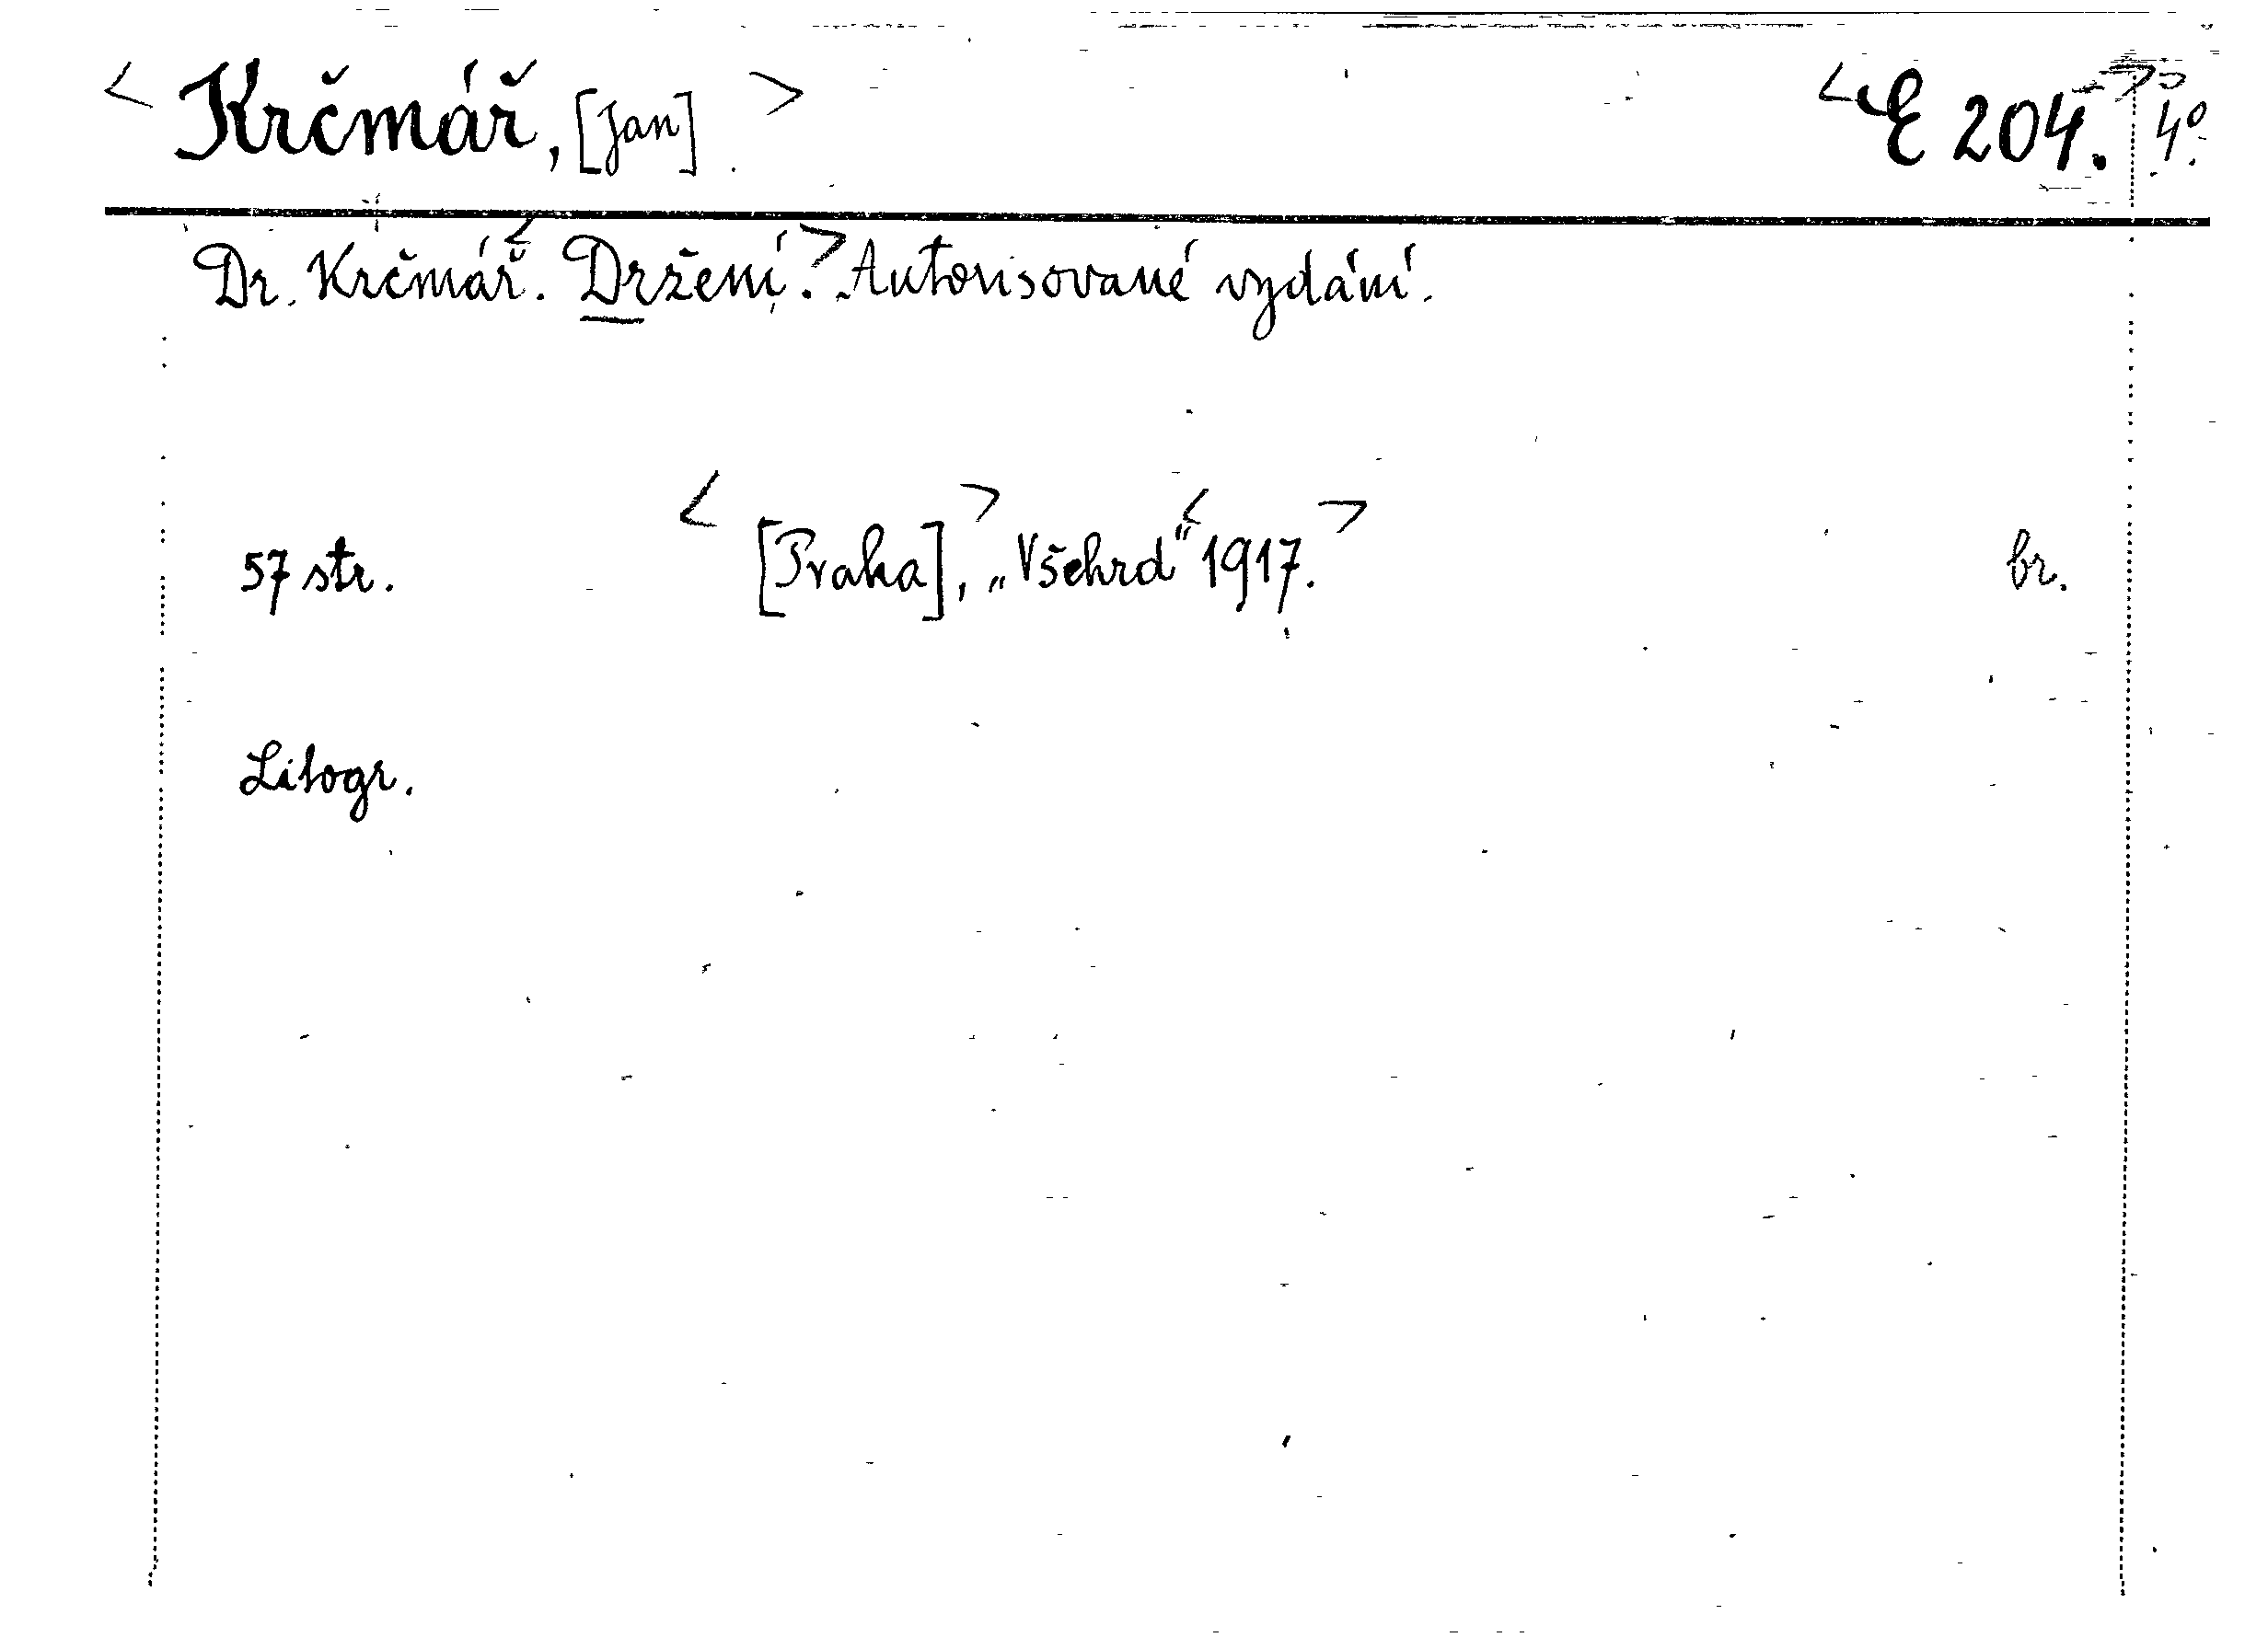 < Krčmář, [Jan] > < E 204. > 4º.
Dr. Krčmář. < Držení. > Autorisované vydání.
57 str. < [Praka], > „Všehrd“ < 1917. > br.
Litogr.